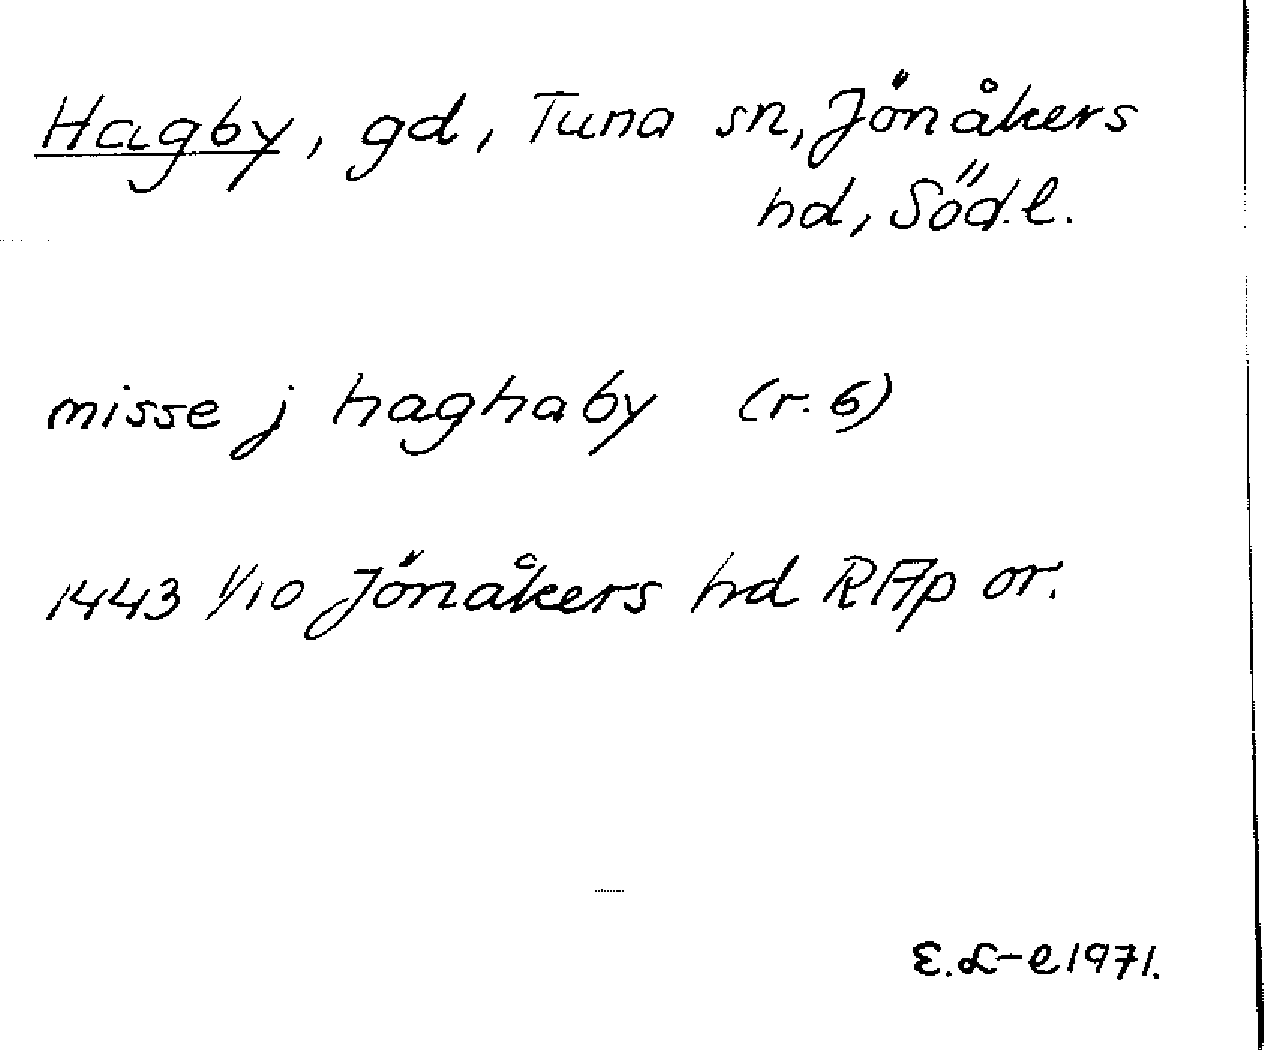 Hagby, gd, Tuna sn, Jönåkers
hd, Söd.l.
misse j haghaby (r. 6)
1443 1/10 Jönåkers hd RAp or.
E.L-e 1971.